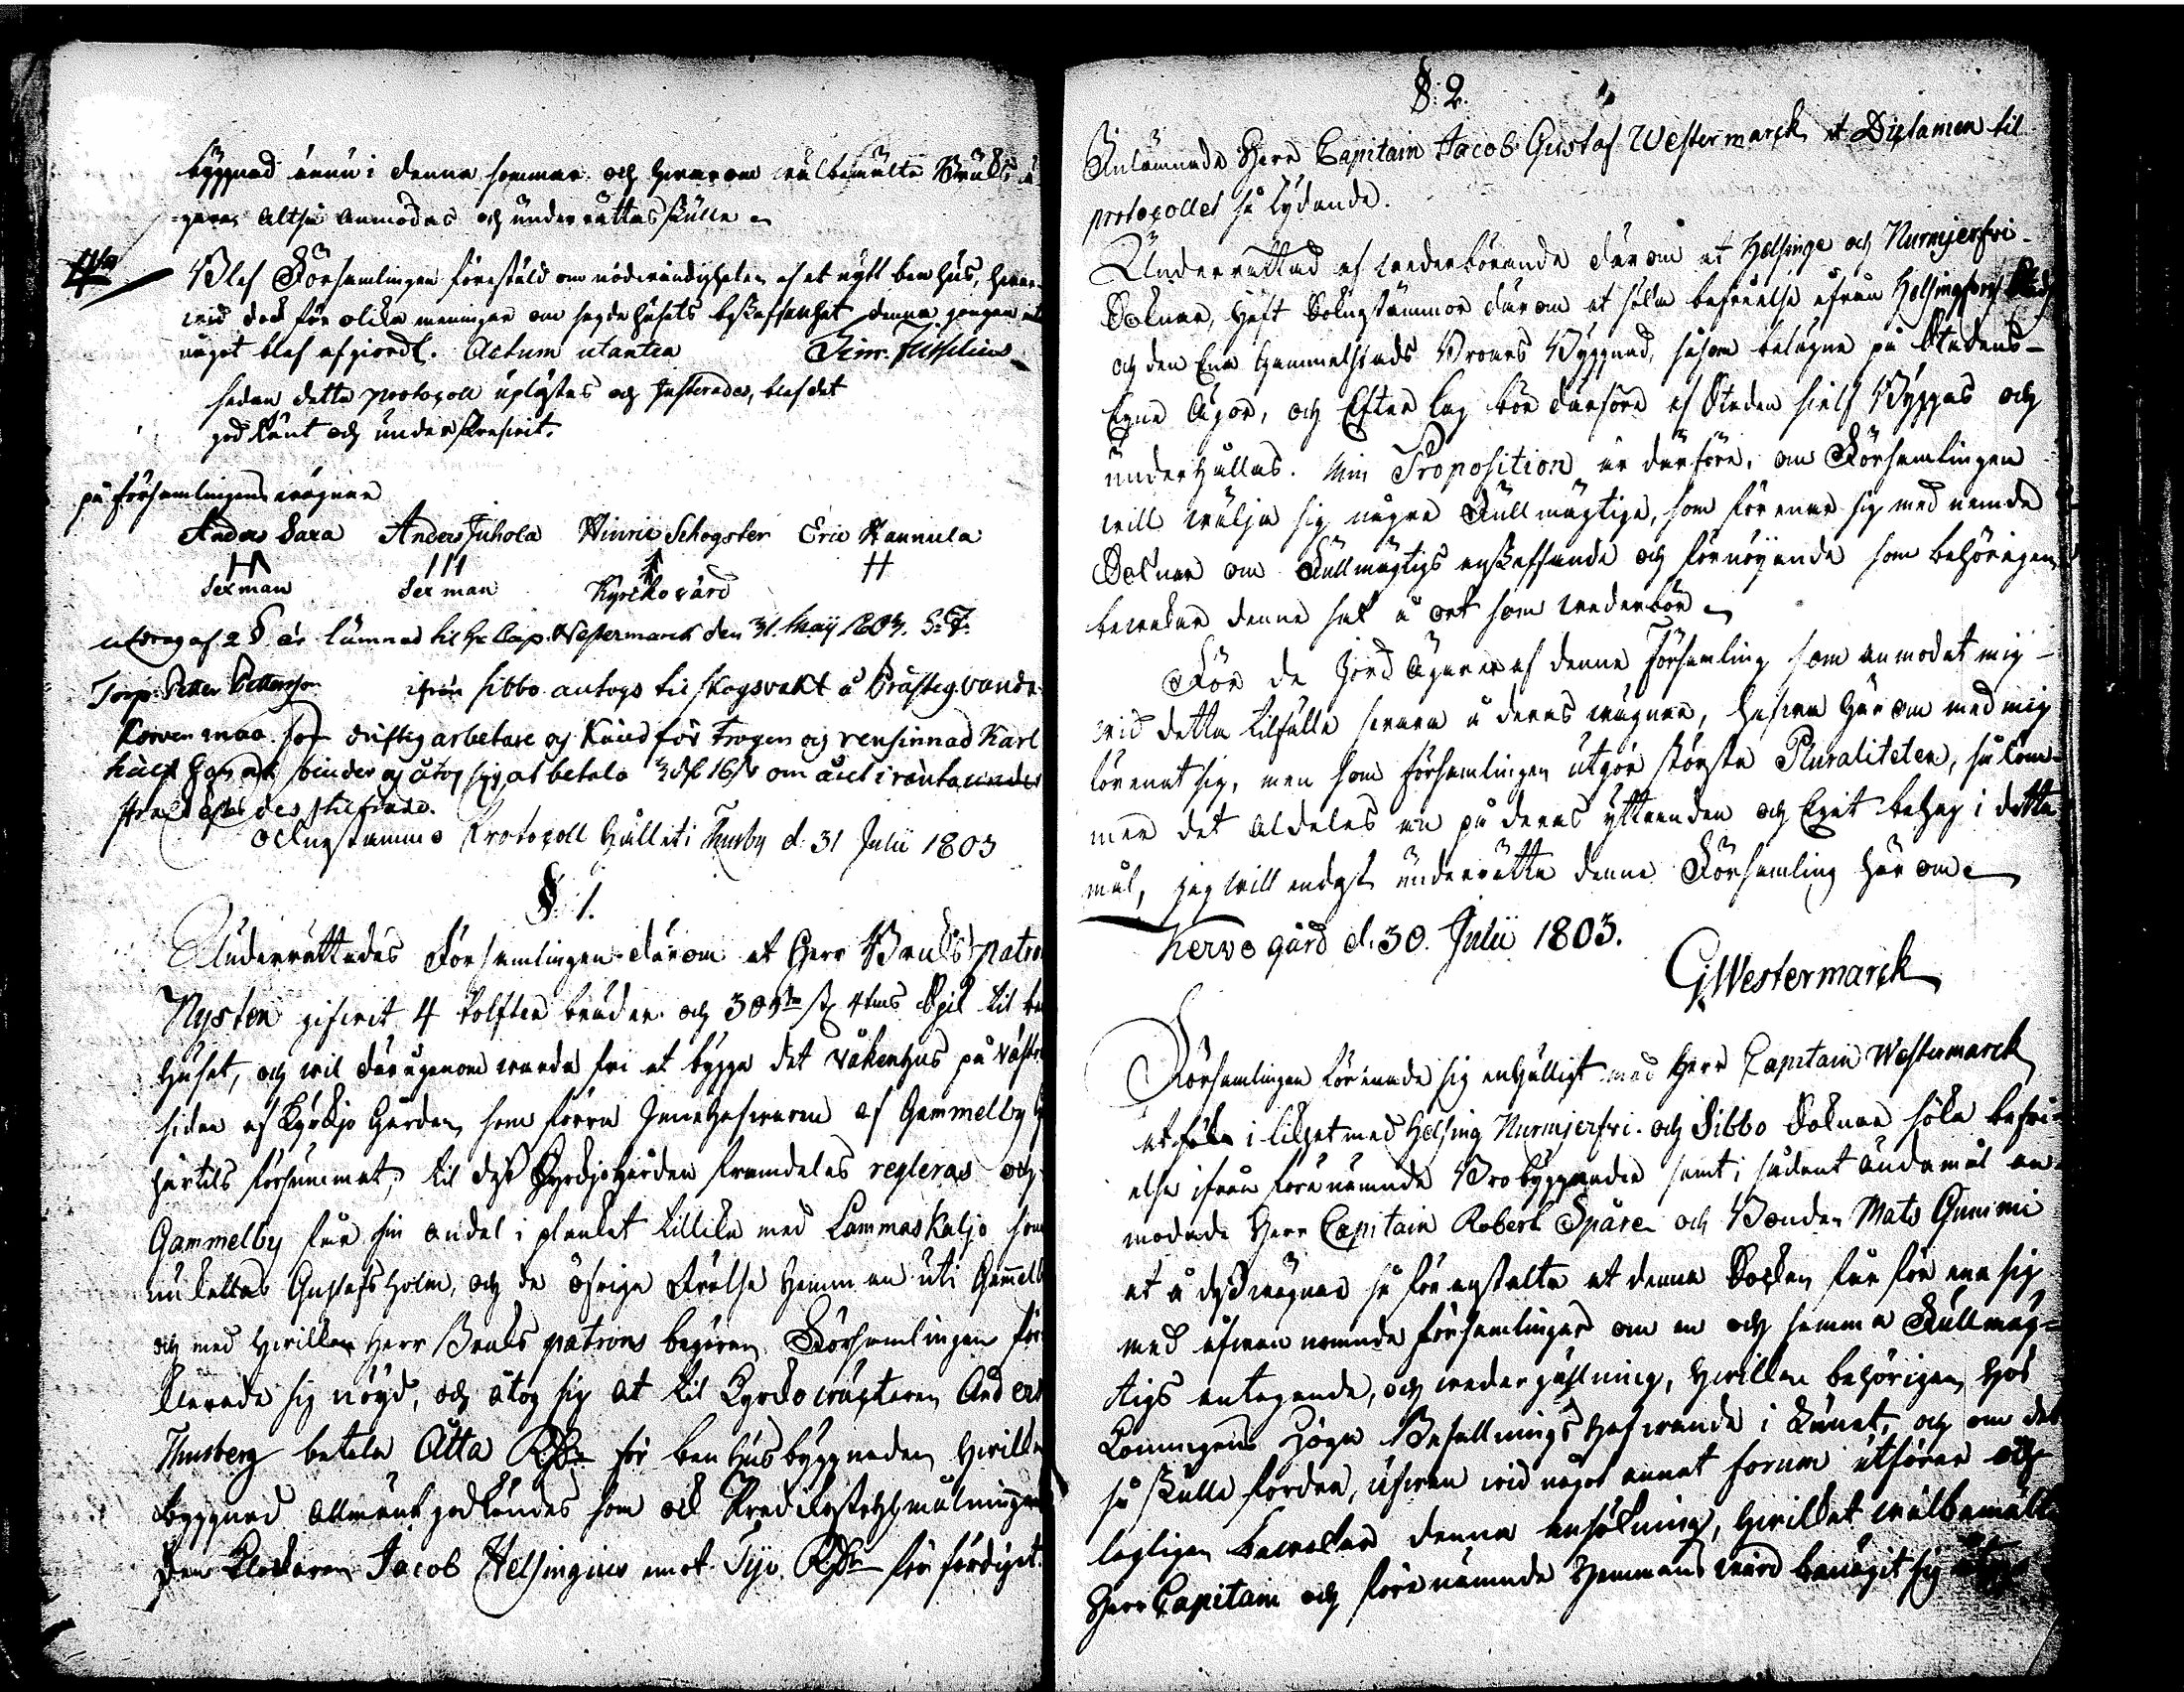 byggnad ännu i denna sommar och herom wälbemälte Bruks ä-
garen altså anmodas och underrättas skulle
4to Blef Församlingen föreståld om nödwändigheten af et nytt benhus, hwar-
wid dock för olika meningar om sagde husets beskaffenhet denna gången ej
något blef afgiordt. Actum utantea
sedan detta protocoll uplystes och Justerades, blef det
godkänt och underskrefwit.
på församlingens wägnar
Anders Saxa Anders Juhola Hinric Schogster Eric Hannula
Sexman Sex man Kyrckovärd
utdrag af 2 § är lämnad til Hr Cap. Westermarck den 31. Maij 1803. S:T.
Torp. Petter Pettersson ifrån Sibbo antogs til skogsvakt å Prästeg.
som driftig arbetare og känd för trogen og rensinnad Karl
og åtog sig at betala 3 Rd 16 s om året i ränta
des tilstånd.
Socknestämmo Protocoll hållit i Thusby d. 31 Julii 1803
§. 1.
Underrättades Församlingen därom at Herr Bruks patron
Nysten gifwit 4 tolfter bräder och 300de st 4tums Spik til ben
huset, och wil därigenom warda fri at bygga det våkenhus på västra
sidan af Kyrkjo Gården, som förra Innehafwaren af Gammelby
härtils försummat, til dess Kyrkjogården framdeles regleras och
Gammelby får sin andel i planket tillika med Lammaskaljo som
nu kallas Gustafsholm, och de öfriga Frälse Hemman uti Gammelby
och med hwilken Herr Bruks patrons begäran Församlingen för-
klarade sig nöjd, och åtog sig at til Kyrkowäktaren Anders
Thusberg betala Åtta Rdr för benhusbyggnaden, hwilken
byggnad Allmänt godkändes som ock Predikostols målningen
den Klockaren Jacob Helsingius emot Tijo Rdr för färdigat.
§. 2.
Inlämnade Herr Capitain Jacob Gustaf Westermarck et Dictamen til
protocollet så lydande.
Underrättad af wederbörande därom at Helsinge och Nurmjerfvi
Soknar, haft Soknestämmor därom at söka befrielse ifrån Helsingfors Stads
och den Ena Gammelstads Broars Byggnad, såsom belägne på Stadens
Egne Ägor, och Efter lag bör därföre af Staden sielf Byggas och
underhållas. Min Proposition är därföre, om Församlingen
will wälja sig några Fullmägtige, som förenar sig med nemde
Soknar om Fullmägtigs anskaffande och förnöijande som behörigen
bewakar denna sak å ort som wederbör
För de Jord Ägare af denne Församling som anmodat mig
wid detta tilfälle swara å deras wägnar, hafwa här om med mig
förenat sig, men som församlingen utgör största Pluraliteten, så kom-
mer det aldeles an på deras yttranden och Eget behag i detta
mål, jag will endast underrätta denne Församling här om
Kervo gård d. 30. Julii 1803.
G Westermarck
Församlingen förenade sig enhälligt med Herr Capitain Westermarck
at söka i likhet med Helsing Nurmjerfvi och Sibbo Soknar söka befri-
else ifrån förenämnde Bro byggnader samt i sådant ändamål an-
modade Herr Capitain Robert Spåre och Bonden Mats Gummi
at å dess wägnar så föranstalta at denna Soken får förena sig
med äfwan nemnde församlingar om en och samma Fullmäg-
tigs antagande, och wedergällning, hwilken behörigen hos
Konungens Höga Befallningshafwande i Länet, och om det
så skulle fordra, äfwen wid något annat forum utförer och
lagligen bewakar denna ansökning, hwilket wälbemälte
Herr Capitain och förenämnde Hemmans wärd benägit sig